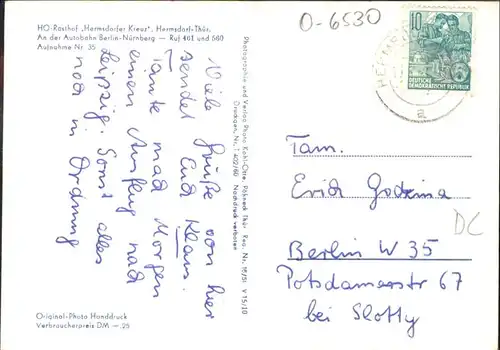 HO-Rasthof „Hermsdorfer Kreuz", Hermsdorf-Thür.
An der Autobahn Berlin-Nürnberg — Ruf 401 und 560
Aufnahme Nr. 35
Viele Grüße von hier
sendet Euch Klaus.
Tante mad Morgen
einen Ausflug nad
Leipzig. Sonst alles
nod in Ordnung
Original-Photo Handdruck
Verbraucherpreis DM —.25
Photographie und Verlag Photo König-Otto, Pößneck Thür. Reg. Nr. 16/51 V 15/10
Drucken. Nr. T 402/60 Nachdruck verboten
O-6530
10
DEUTSCHE
DEMOKRATISCHE REPUBLIK
a
Fam.
Erich
Berlin W 35
Potsdamerstr 67
bei Slotty
DC